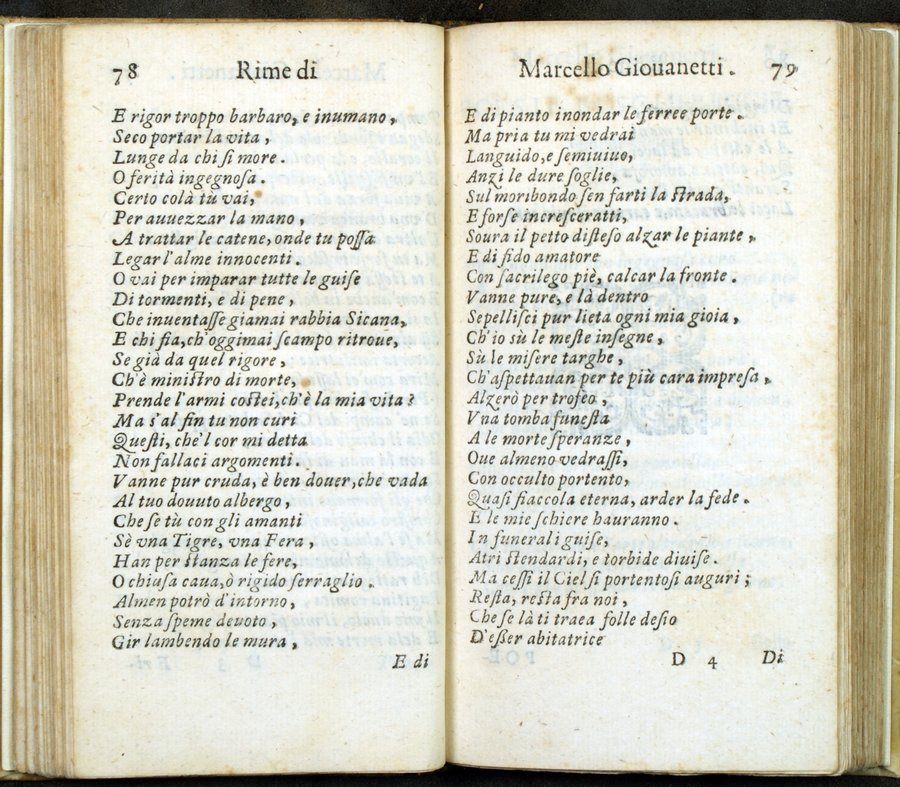 78 Rime di
E rigor troppo barbaro, e inumano,
Seco portar la vita,
Lunge da chi si more.
O ferità ingegnosa.
Certo colà tu vai,
Per auuezzar la mano,
A trattar le catene, onde tu possa
Legar l'alme innocenti.
O vai per imparar tutte le guise
Di tormenti, e di pene,
Che inuentasse giamai rabbia Sicana,
E chi fia, ch'oggimai scampo ritroue,
Se già da quel rigore,
Ch'è ministro di morte,
Prende l'armi costei, ch'è la mia vita?
Ma s'al fin tu non curi
Questi, che'l cor mi detta
Non fallaci argomenti.
Vanne pur cruda, è ben douer, che vada
Al tuo douuto albergo,
Che se tù con gli amanti
Sè vna Tigre, vna Fera,
Han per stanza le fere,
O chiusa caua, ò rigido serraglio.
Almen potrò d'intorno,
Senza speme deuoto,
Gir lambendo le mura,
E di
Marcello Giouanetti. 79
E di pianto inondar le ferree porte.
Ma pria tu mi vedrai
Languido, e semiuiuo,
Anzi le dure soglie,
Sul moribondo sen farti la strada,
E forse incresceratti,
Soura il petto disteso alzar le piante,
E di fido amatore
Con sacrilego piè, calcar la fronte.
Vanne pure, e là dentro
Sepellisci pur lieta ogni mia gioia,
Ch'io sù le meste insegne,
Sù le misere targhe,
Ch'aspettauan per te più cara impresa,
Alzerò per trofeo,
Vna tomba funesta
A le morte speranze,
Oue almeno vedrassi,
Con occulto portento,
Quasi fiaccola eterna, arder la fede.
E le mie schiere hauranno.
In funerali guise,
Atri stendardi, e torbide diuise.
Ma cessi il Ciel sì portentosi auguri;
Resta, resta fra noi,
Che se là ti traea folle desio
D'esser abitatrice
D 4 Di